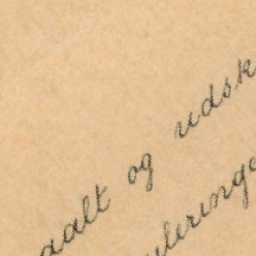 aalt og udsk
uleringe